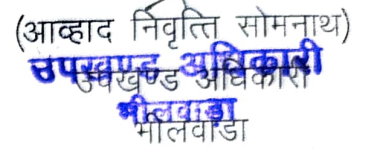 (आव्हाद निवृत्ति सोमनाथ)
उपखण्ड अधिकारी
उपखण्ड अधिकारी
भीलवाड़ा
भीलवाडा